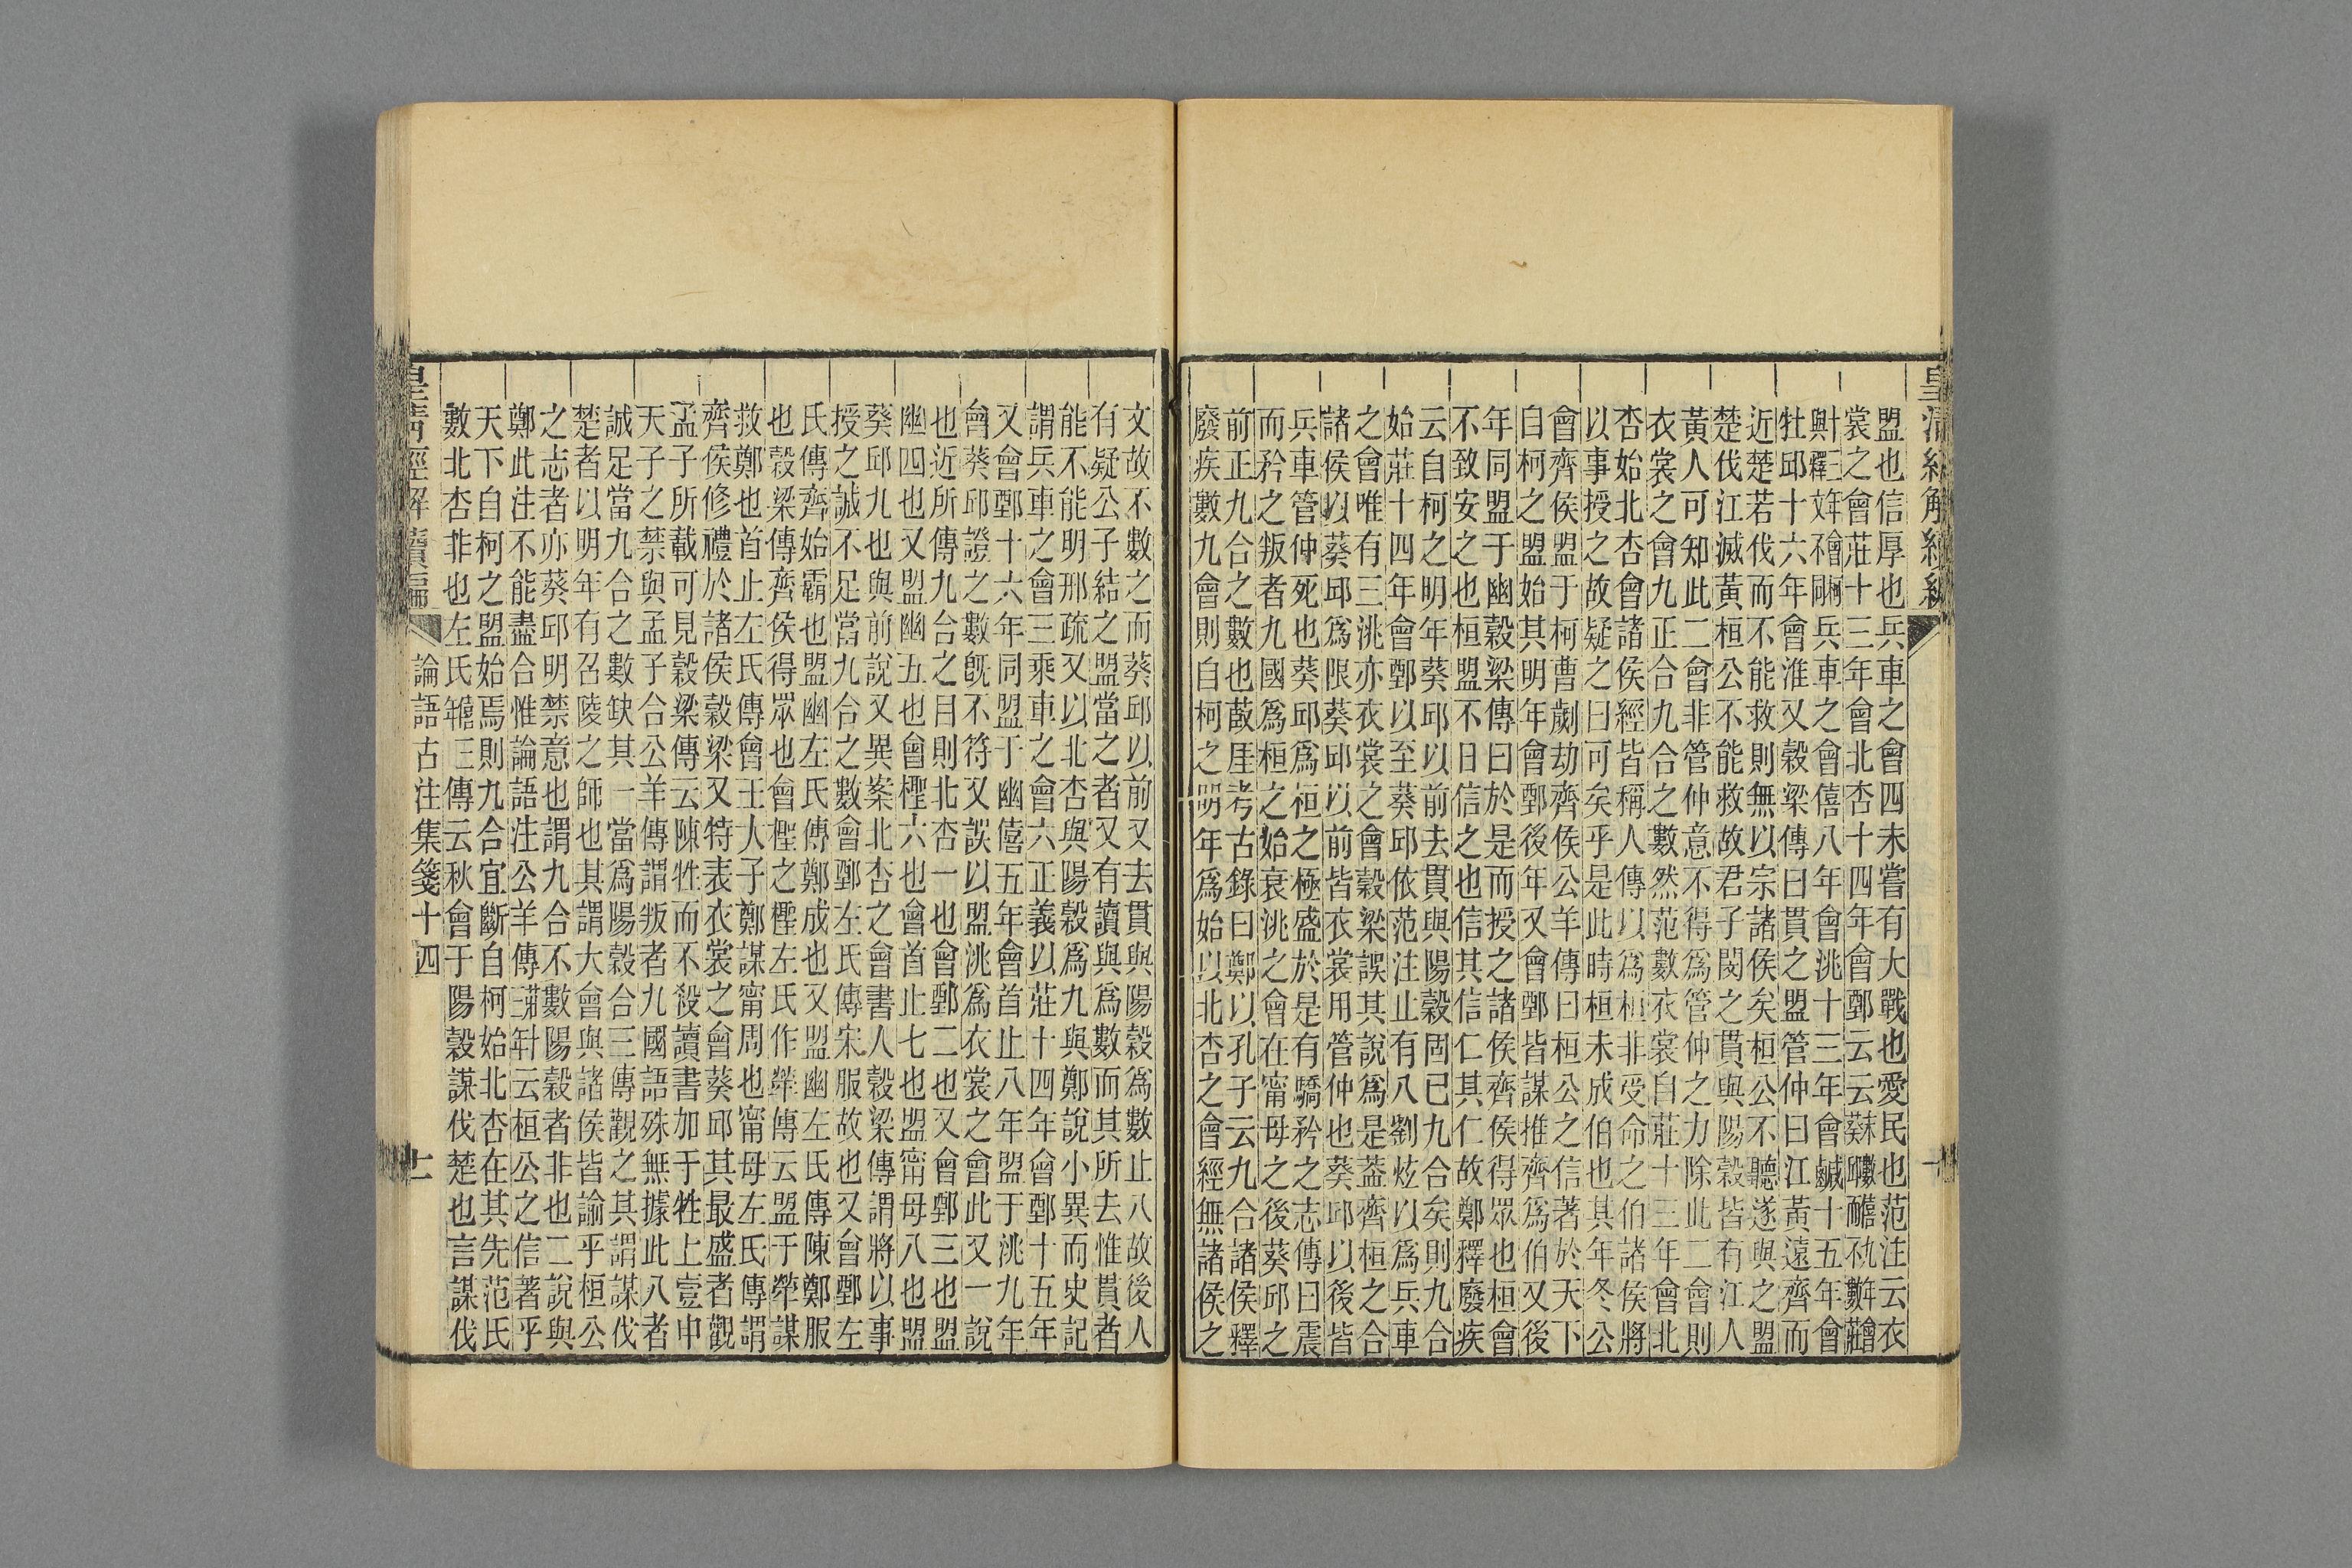 皇清經解續編
盟也信厚也兵車之會四未嘗有大戰也愛民也范注云衣
裳之會莊十三年會北杏十四年會鄄云云
兵車之會僖八年會洮十三年會鹹十五年會
牡邱十六年會淮又榖梁傳曰貫之盟管仲曰江黃遠齊而
近楚若伐而不能救則無以宗諸侯矣桓公不聽遂與之盟
楚伐江滅黃桓公不能救故君子閔之貫與陽榖皆有江人
黃人可知此二會非管仲意不得爲管仲之力除此二會則
衣裳之會九正合九合之數然范數衣裳自莊十三年會北
杏始北杏會諸侯經皆稱人傳以爲桓非受命之伯諸侯將
以事授之故疑之曰可矣乎是此時桓未成伯也其年冬公
會齊侯盟于柯曹劌劫齊侯公羊傳曰桓公之信著於天下
自柯之盟始其明年會鄄後年又會鄄皆謀推齊爲伯又後
年同盟于幽榖梁傳曰於是而授之諸侯齊侯得眾也桓會
不致安之也桓盟不日信之也信其信仁其仁故鄭釋廢疾
云自柯之明年葵邱以前去貫與陽榖固已九合矣則九合
始莊十四年會鄄以至葵邱依范注止有八劉炫以爲兵車
之會唯有三洮亦衣裳之會榖梁誤其說爲是葢齊桓之合
諸侯以葵邱爲限葵邱以前皆衣裳用管仲也葵邱以後皆
兵車管仲死也葵邱爲桓之極盛於是有驕矜之志傳曰震
而矜之叛者九國爲桓之始衰洮之會在甯母之後葵邱之
前正九合之數也敔厓考古錄曰鄭以孔子云九合諸侯釋
廢疾數九會則自柯之明年爲始以北杏之會經無諸侯之
文故不數之而葵邱以前又去貫與陽榖爲數止八故後人
有疑公子結之盟當之者又有讀與爲數而其所去惟貫者
能不能明邢疏又以北杏與陽榖爲九與鄭說小異而史記
謂兵車之會三乘車之會六正義以莊十四年會鄄十五年
又會鄄十六年同盟于幽僖五年會首止八年盟于洮九年
會葵邱證之數旣不符又誤以盟洮爲衣裳之會此又一說
也近所傳九合之目則北杏一也會鄄二也又會鄄三也盟
幽四也又盟幽五也會檉六也會首止七也盟甯母八也盟
葵邱九也與前說又異案北杏之會書人榖梁傳謂將以事
授之誠不足當九合之數會鄄左氏傳宋服故也又會鄄左
氏傳齊始霸也盟幽左氏傳鄭成也又盟幽左氏傳陳鄭服
也榖梁傳齊侯得眾也會檉之檉左氏作犖傳云盟于犖謀
救鄭也首止左氏傳會王大子鄭謀甯周也甯母左氏傳謂
齊侯修禮於諸侯榖梁又特表衣裳之會葵邱其最盛者觀
孟子所載可見榖梁傳云陳牲而不殺讀書加于牲上壹申
天子之禁與孟子合公羊傳謂叛者九國語殊無據此八者
誠足當九合之數缺其一當爲陽榖合三傳觀之其謂謀伐
楚者以明年有召陵之師也其謂大會與諸侯皆諭乎桓公
之志者亦葵邱明禁意也謂九合不數陽榖者非也二說與
鄭此注不能盡合惟論語注公羊傳云桓公之信著乎
天下自柯之盟始焉則九合宜斷自柯始北杏在其先范氏
數北杏非也左氏傳云秋會于陽榖謀伐楚也言謀伐
皇清經解續編 論語古注集箋十四 十一